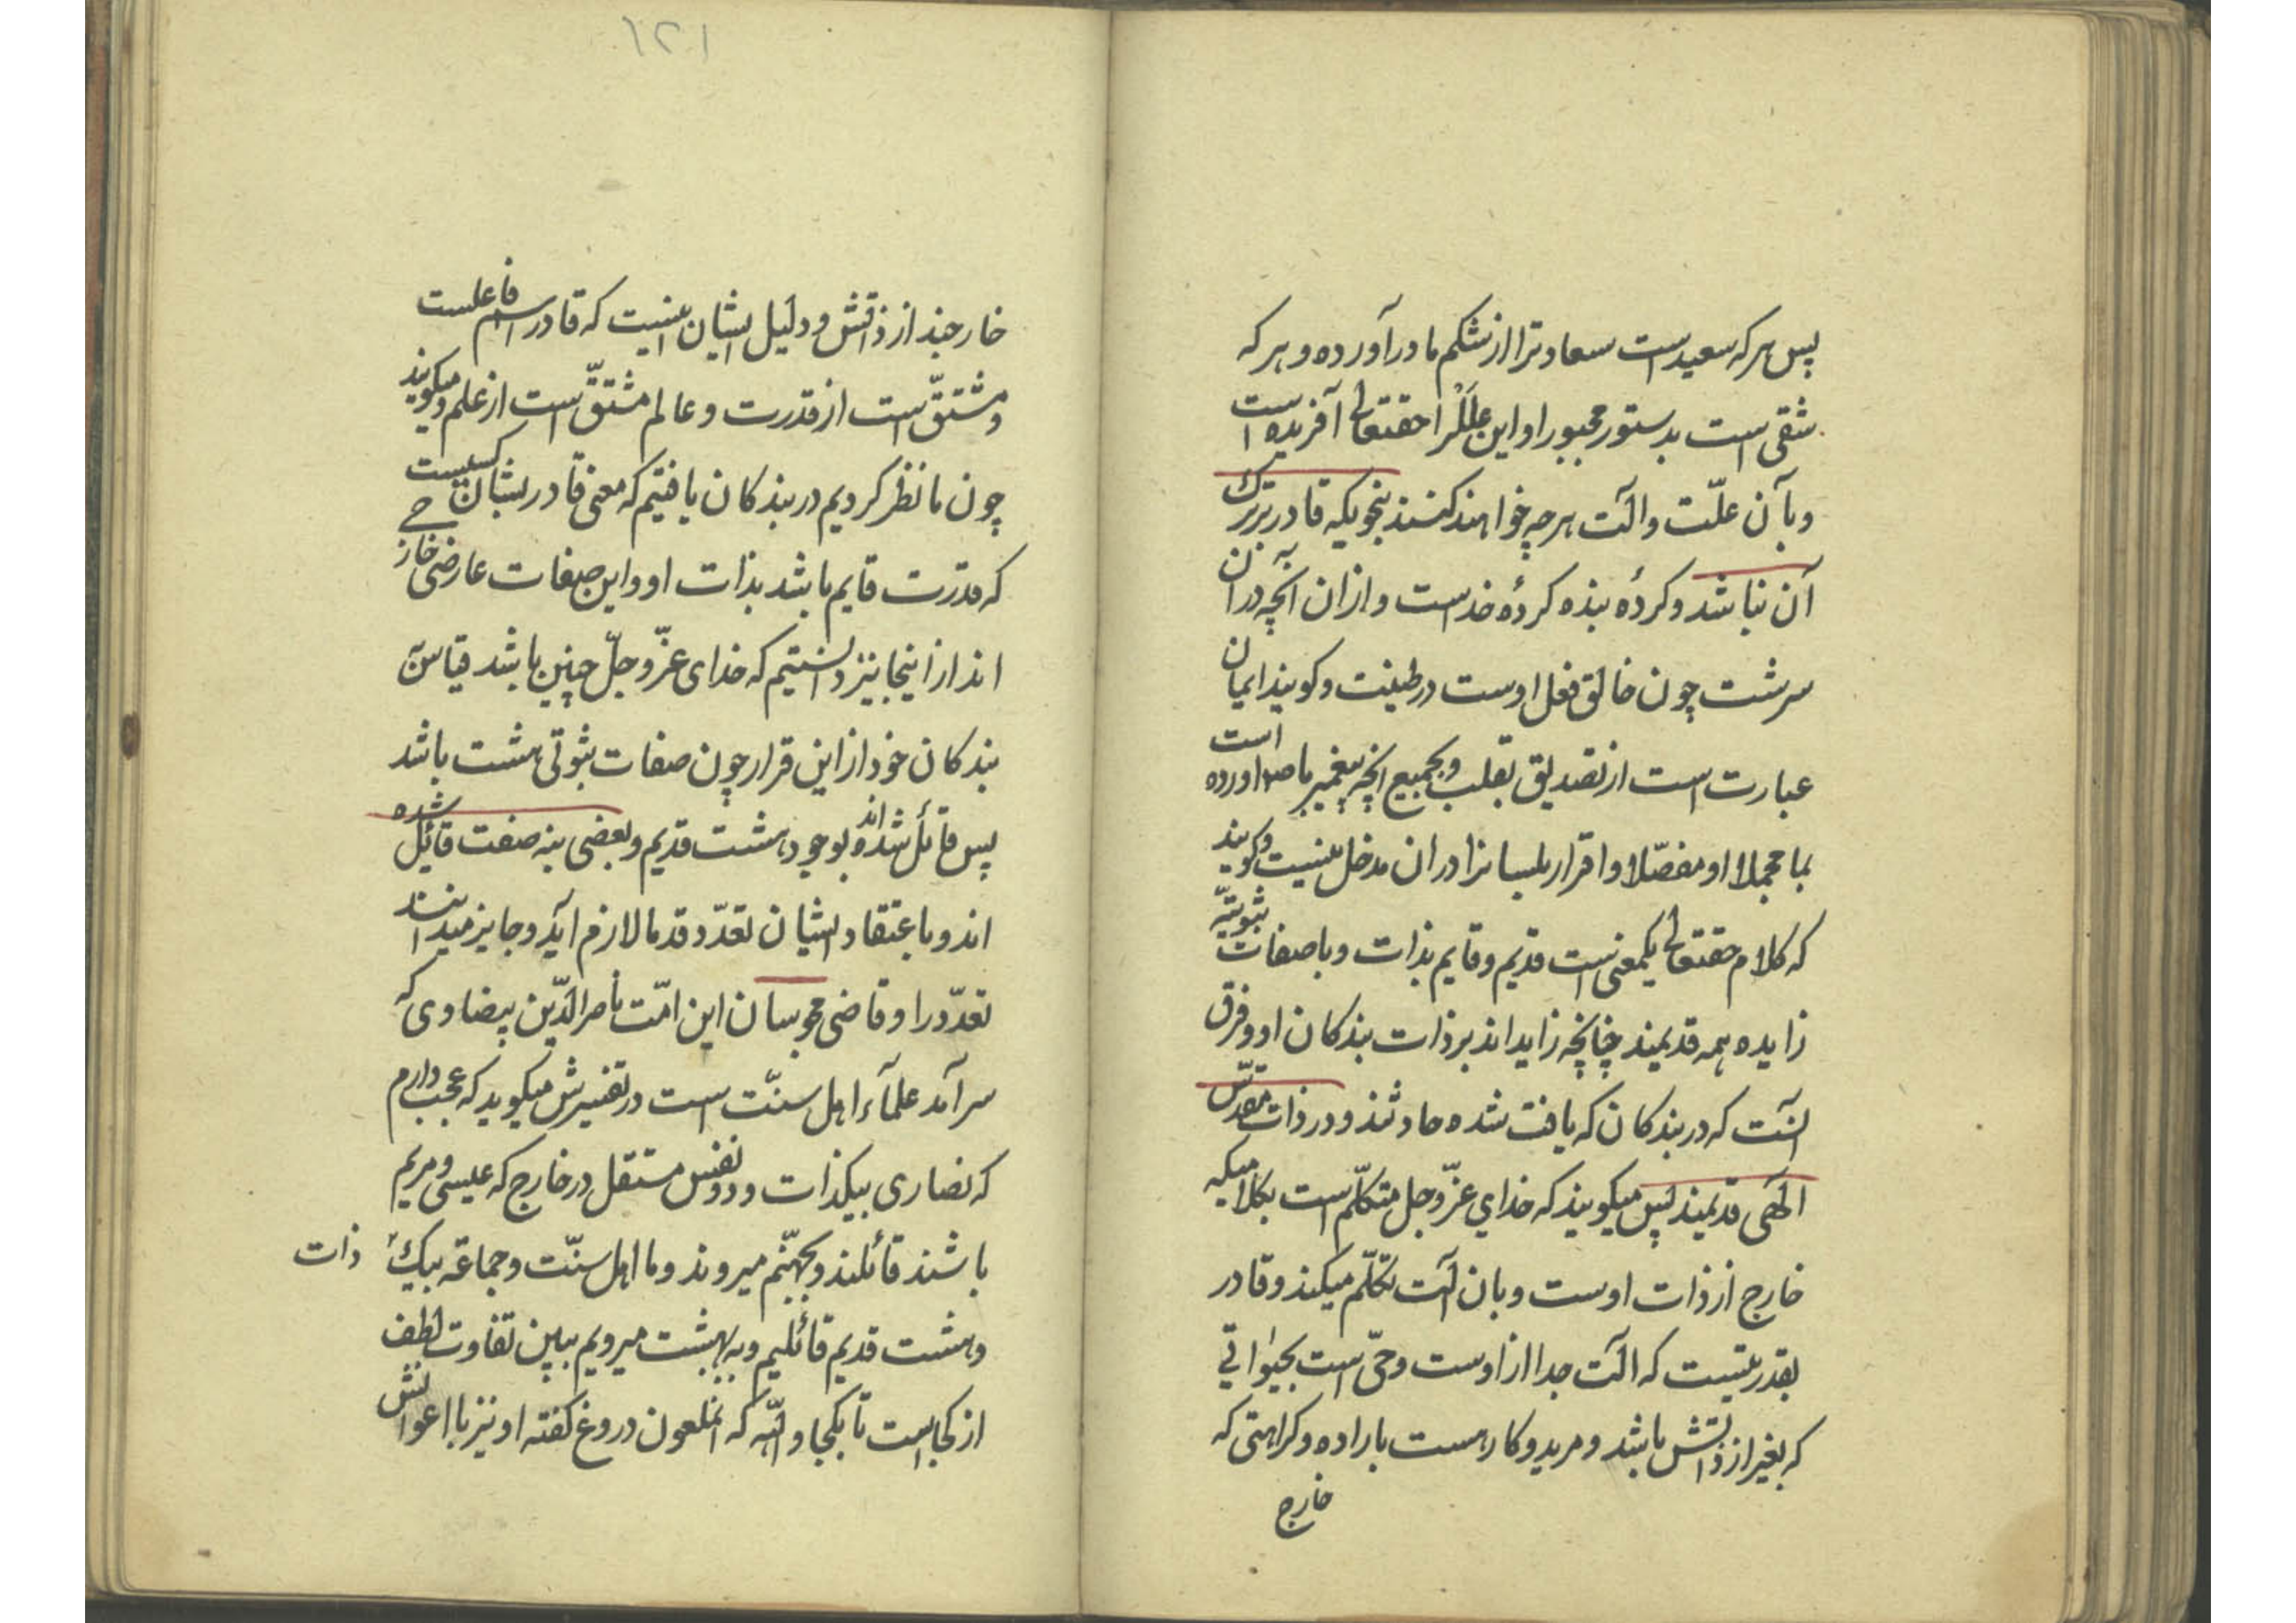 پس هر که سعید است سعادترا از شکم مادر آورده و هر که
شقی است بدستور مجبور او این علل را حقتعالی آفریده است
و بآن علّت و آلت هر چه خواهند کنند بنحویکه قادر بر ترک
آن نباشد و کردهٔ بنده کردهٔ خداست و از ان آنچه در آن
سرشت چون خالق فعل اوست در طینت و کویند ایمان
عبارت است از تصدیق بقلب و بجمیع انچه پیغمبر ما ص اورده است
بما مجملا او مفصّلا و اقرار بلسانرا در ان مدخل نیست و کویند
که کلام حقتعالی یکمعنی است قدیم و قایم بذات و با صفات ثبوتیّه
زایده همه قدیمند چنانچه زاید اند بر ذات بندکان او و فرق
انست که در بندکان که یافت شده حادثند و در ذات مقدّس
الهی قدیمند پس میکویند که خدای عزّ و جل متکلّم است بکلامیکه
خارج از ذات اوست و بان آلت تکلّم میکند و قادر
بقدرتیست که آلت جدا از اوست و حیّ است بحیواتی
که بغیر از ذاتش باشد و مرید و کاره است باراده و کراهتی که
خارج
١٢١
خارجند از ذاتش و دلیل ایشان اینست که قادر اسم فاعلست
و مشتقّ است از قدرت و عالم مشتقّ است از علم و میکویند
چون ما نظر کردیم در بندکان یافتیم که معنی قادر ایشان کسیست
که قدرت قایم باشد بذات او و این صفات عارضی خارجی
اند از اینجا نیز دانستیم که خدای عزّ و جلّ چنین باشد قیاس به
بندکان خود از این قرار چون صفات ثبوتی هشت باشد
پس قائل شده اند بوجود هشت قدیم و بعضی بنه صفت قائل شده
اند و باعتقاد ایشان تعدّد قدما لازم آید و جایز میدانند
تعدّد را و قاضی مجوسان این امّت ناصر الدّین بیضاوی که
سرآمد علمآء اهل سنّت است در تفسیرش میکوید که عجب دارم
که نصاری بیکذات و دو نفس مستقل در خارج که عیسی و مریم
باشند قائلند و بجهنّم میروند و ما اهل سنّت و جماعة بیک ذات
و هشت قدیم قائلیم و به بهشت میرویم ببین تفاوت لطف
از کجاست تا بکجا و الله که انملعون دروغ کفته او نیز با اعوانش